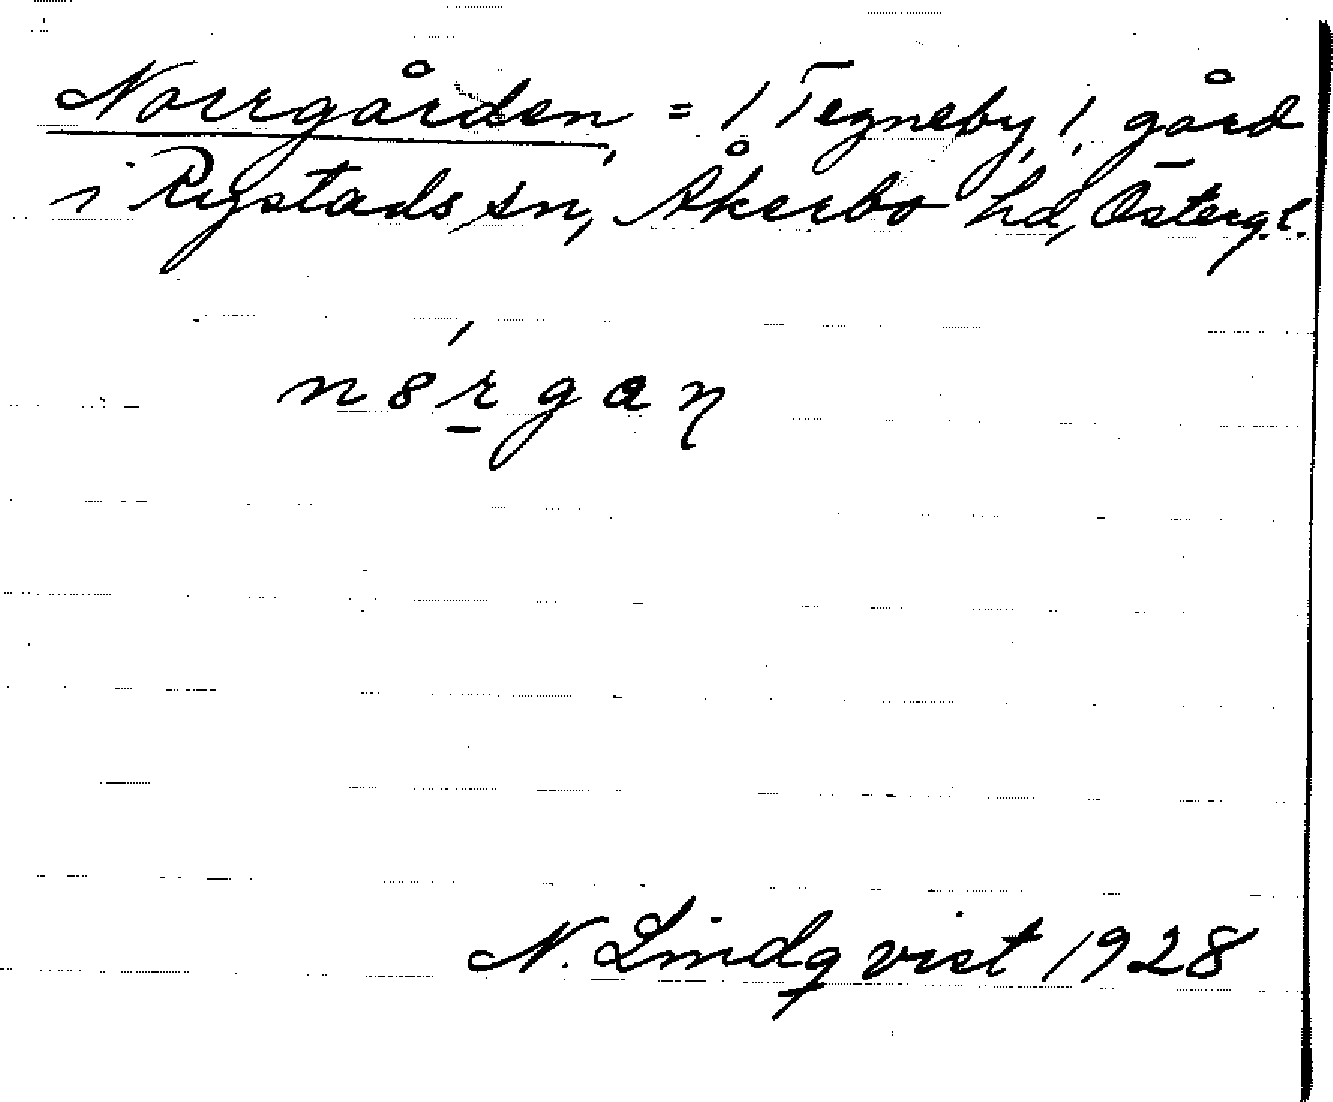 Norrgården = 1 Tegneby, 1 gård
i Rystads sn, Åkerbo hd, Österg.l.
n8́r̲gaŋ
N. Lindqvist 1928